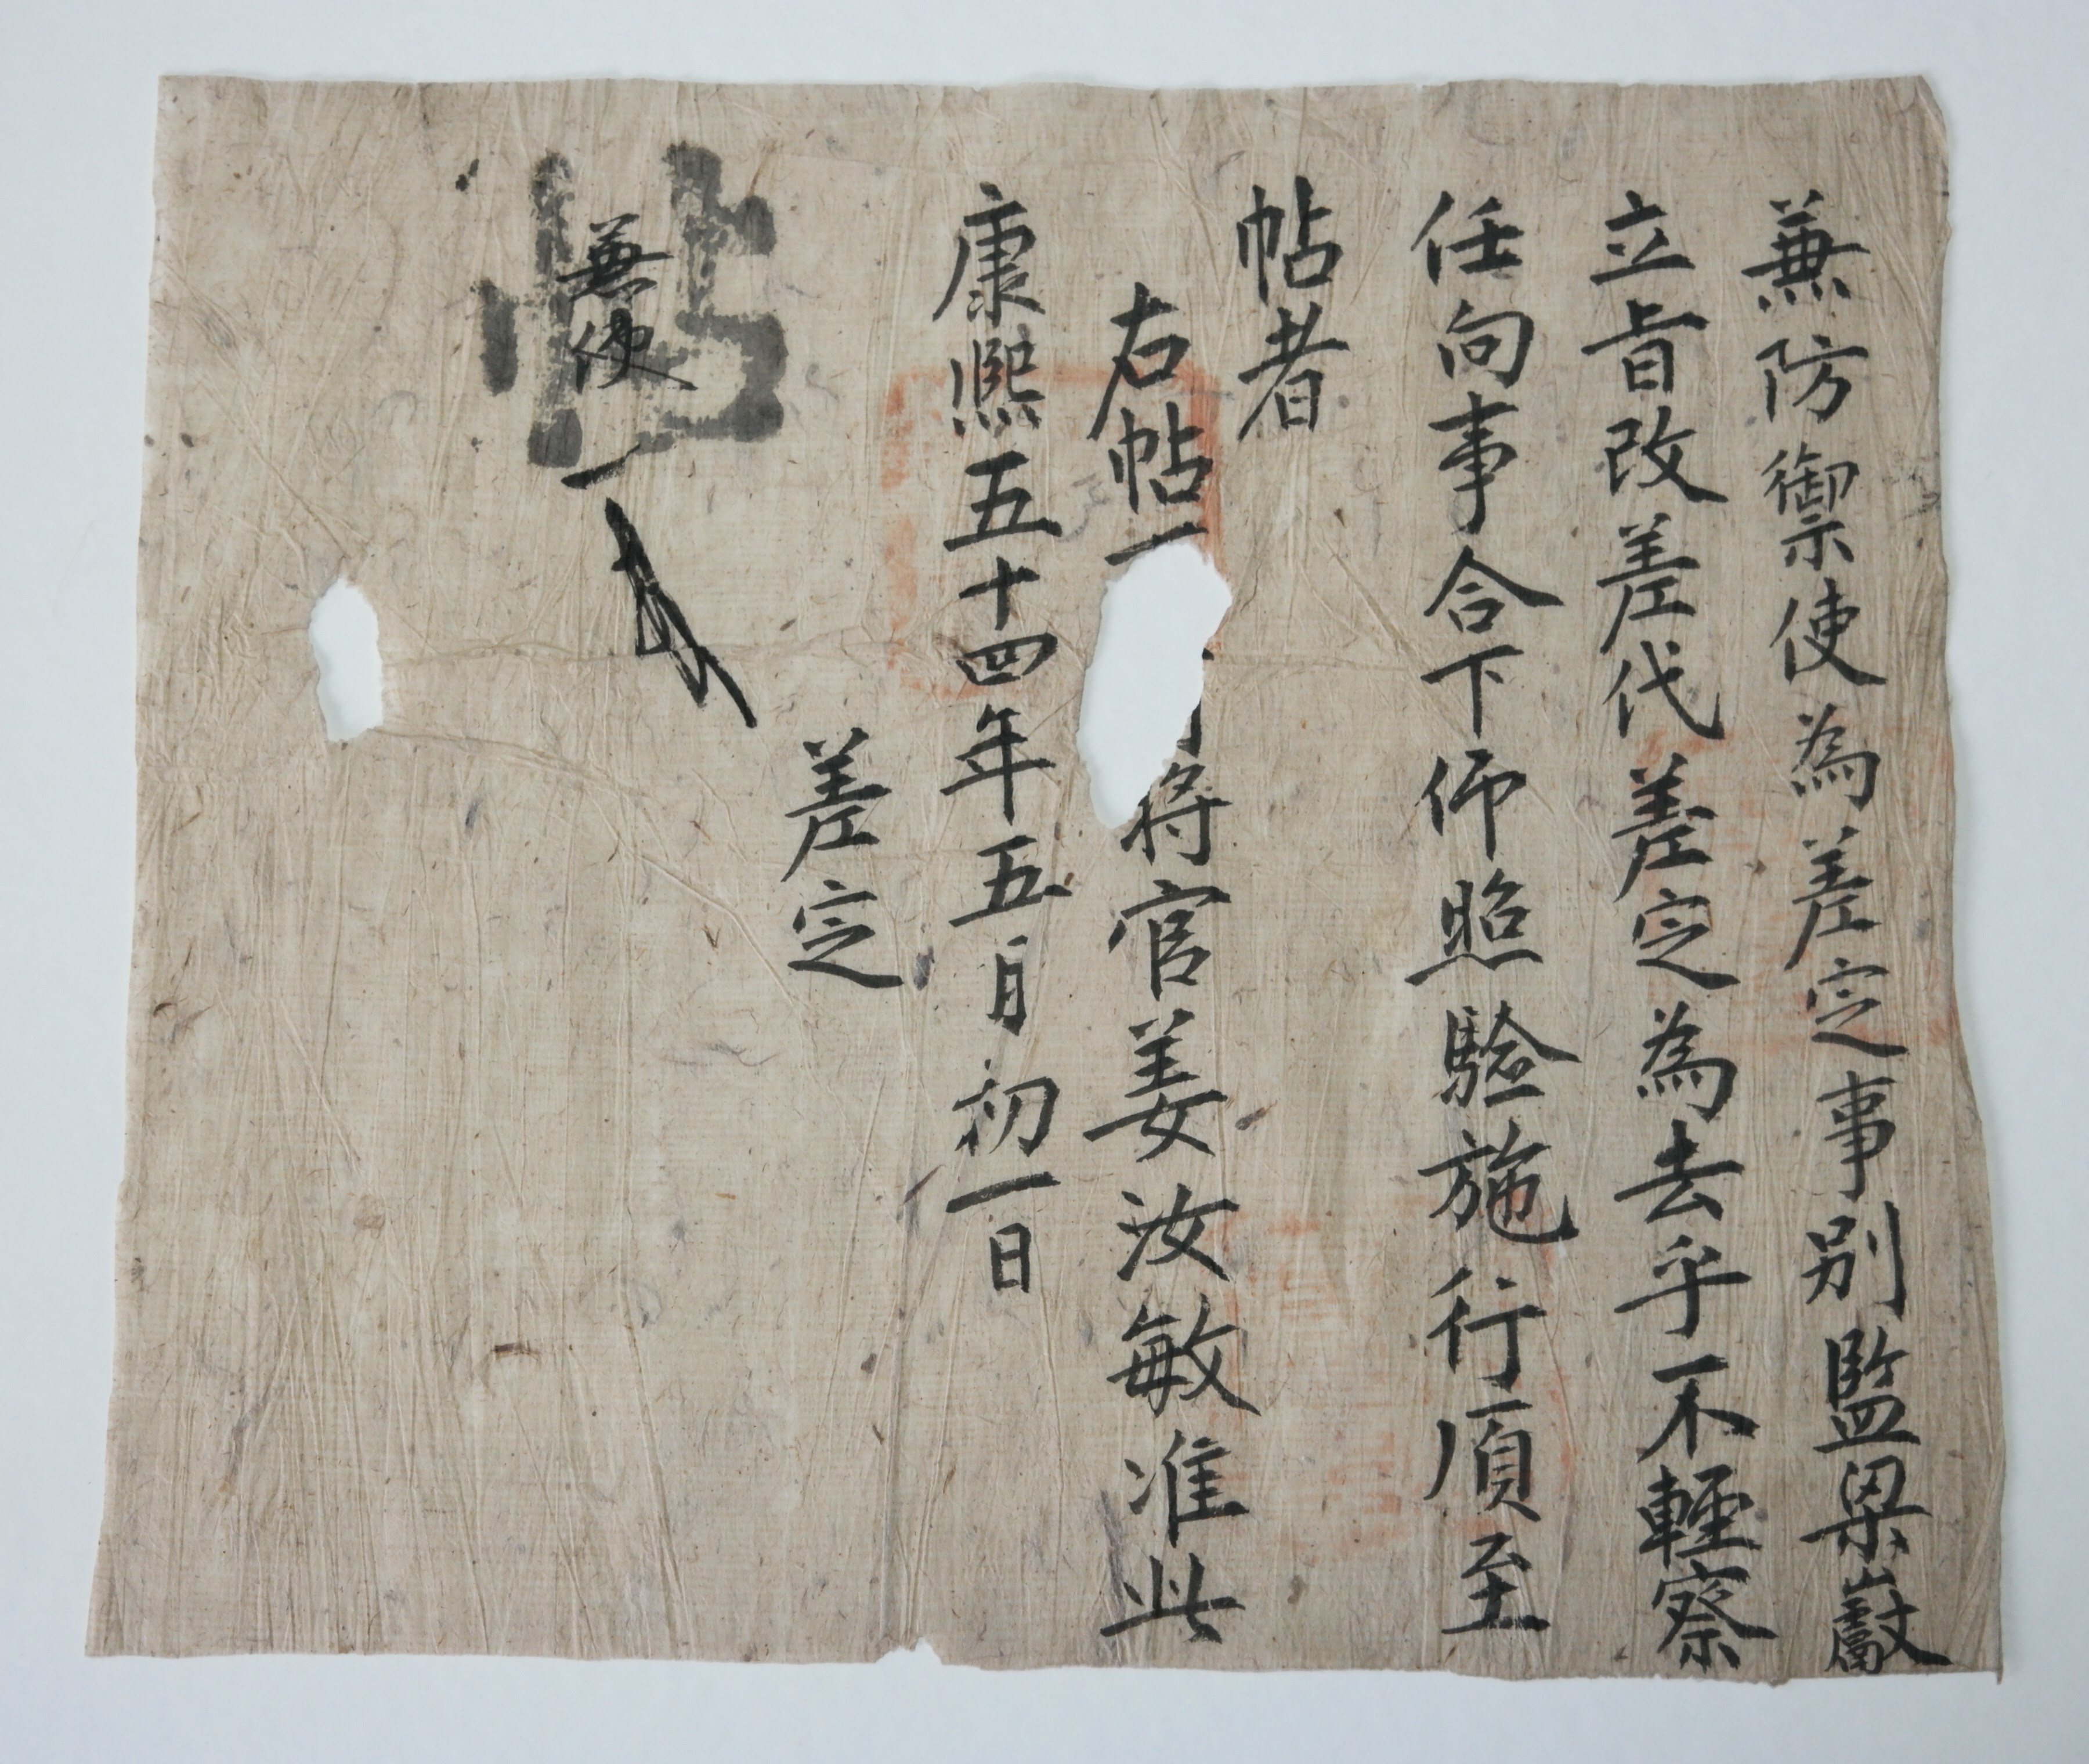 兼防禦使為差定事別監梁巚
立旨改差代差定為去乎不輕察
任向事合下仰照驗施行湏至
帖者
右帖下將官姜汝敏准此
康熙五十四年五月初一日
差定
帖
兼使